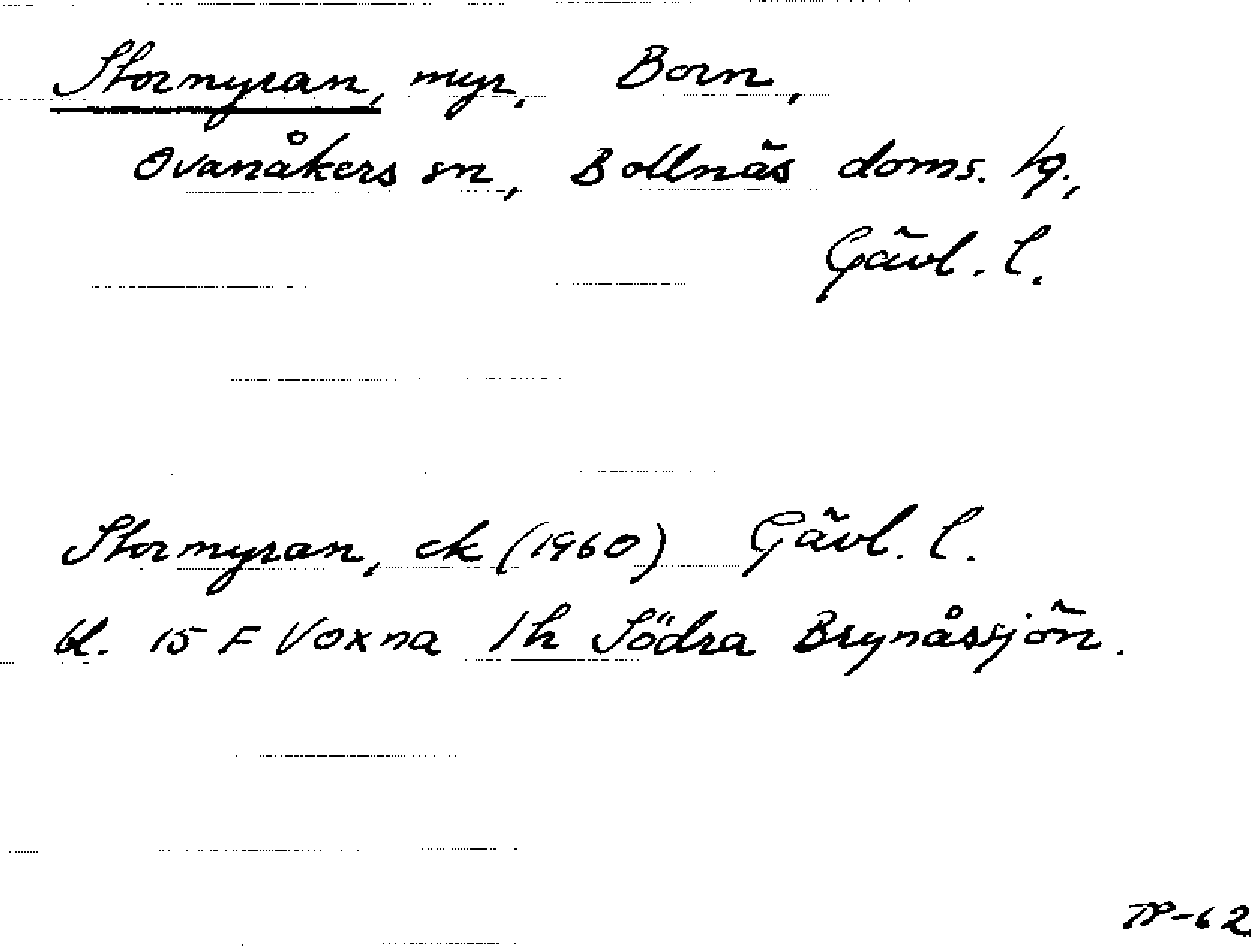 Stormyran, myr, Born,
Ovanåkers sn, Bollnäs doms. hg.,
Gävl. l.
Stormyran, ek (1960) Gävl. l.
bl. 15 F Voxna 1h Södra Brynåssjön.
TP-62